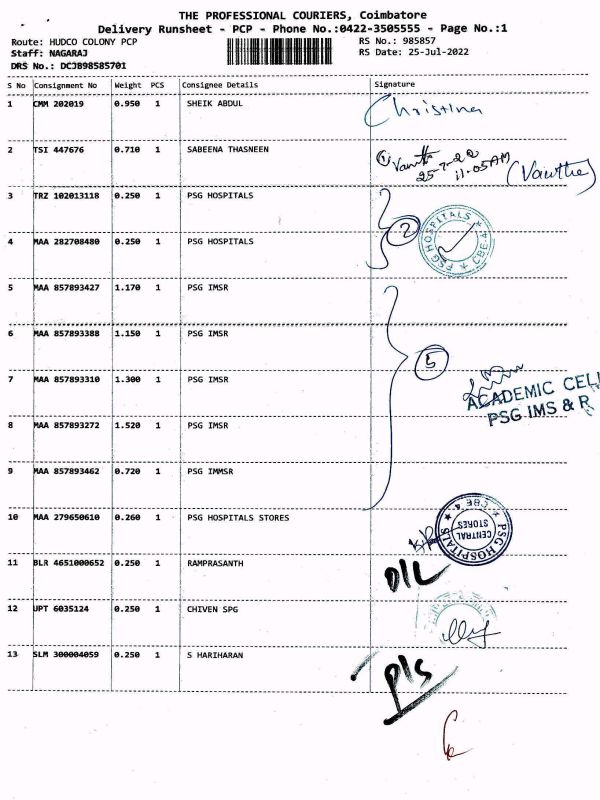 THE PROFESSIONAL COURIERS, Coimbatore
Delivery Runsheet - PCP - Phone No.:0422-3505555 - Page No.:1
Route: HUDCO COLONY PCP RS No.: 985857
Staff: NAGARAJ RS Date: 25-Jul-2022
DRS No.: DCJB98585701
S No Consignment No Weight PCS Consignee Details Signature
1 CMM 202019 0.950 1 SHEIK ABDUL Christina
2 TSI 447676 0.710 1 SABEENA THASNEEN
25-7-22
11.05AM
3 TRZ 102013118 0.250 1 PSG HOSPITALS
2
PSG HOSPITALS ★ CBE-4 ★
4 MAA 282708480 0.250 1 PSG HOSPITALS
5 MAA 857893427 1.170 1 PSG IMSR
6 MAA 857893388 1.150 1 PSG IMSR
5
7 MAA 857893310 1.300 1 PSG IMSR
ACADEMIC CELL
PSG IMS & R
8 MAA 857893272 1.520 1 PSG IMSR
9 MAA 857893462 0.720 1 PSG IMMSR
10 MAA 279650610 0.260 1 PSG HOSPITALS STORES
PSG HOSPITALS ★ CBE 4 ★
CENTRAL
STORES
11 BLR 4651000652 0.250 1 RAMPRASANTH D/L
12 UPT 6035124 0.250 1 CHIVEN SPG
13 SLM 300004059 0.250 1 S HARIHARAN P/S